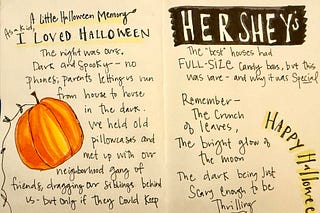 A Little Halloween Memory
As a kid,
I LOVED HALLOWEEN
The night was ours,
Dark and Spooky — no
phones, parents letting us run
from house to house
in the dark.
We held old
pillowcases and
met up with our
neighborhood gang of
friends, dragging our siblings behind
us - but only if They Could Keep
HERSHEY'S
The "best" houses had
FULL-SIZE Candy bars, but this
was rare - and why it was Special
Remember —
The Crunch
of leaves,
The bright glow of
the moon
The dark being Just
Scary Enough to be
Thrilling
HAPPY Hallowee